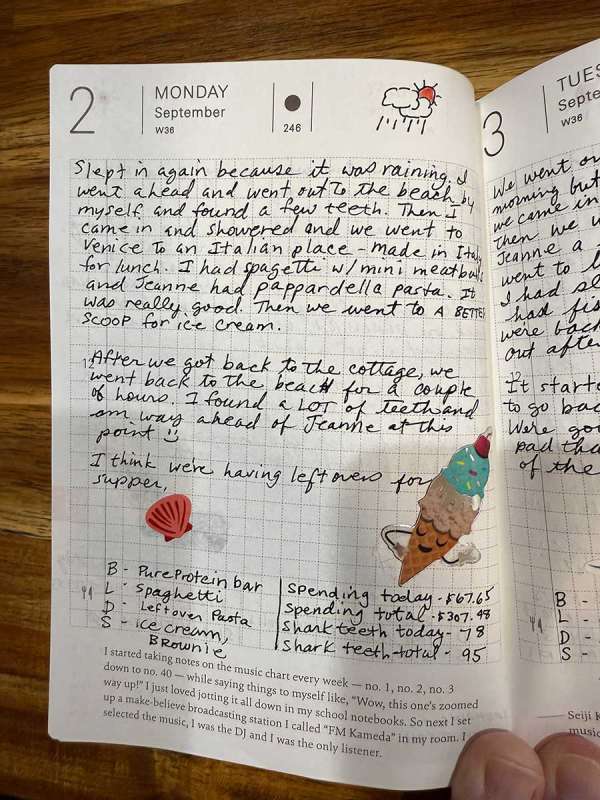 2
MONDAY
September
W36
246
Slept in again because it was raining. I
went ahead and went out to the beach by
myself and found a few teeth. Then I
came in and showered and we went to
Venice to an Italian place - made in Italy
for lunch. I had spagetti w/mini meatballs
and Jeanne had pappardella pasta. It
was really good. Then we went to A BETTER
SCOOP for ice cream.
12
After we got back to the cottage, we
went back to the beach for a couple
of hours. I found a LOT of teeth and
am way ahead of Jeanne at this
point
I think we're having leftovers for
supper,
B - Pure Protein bar
L - Spaghetti
D - Leftover Pasta
S - ice cream,
Brownie
Spending today - $67.65
Spending total - $307.48
Shark teeth today - 78
Shark teeth-total - 95
I started taking notes on the music chart every week — no. 1, no. 2, no. 3
down to no. 40 — while saying things to myself like, "Wow, this one's zoomed
way up!" I just loved jotting it all down in my school notebooks. So next I set
up a make-believe broadcasting station I called "FM Kameda" in my room. I
selected the music, I was the DJ and I was the only listener.
3
TUES
Septe
W36
We went ou
morning but
we came in
then we w
Jeanne a
went to l
I had sl
had fis
were back
out after
12
It starte
to go bac
Were goi
pad tha
of the
B -
L -
D -
S -
Seiji K
music